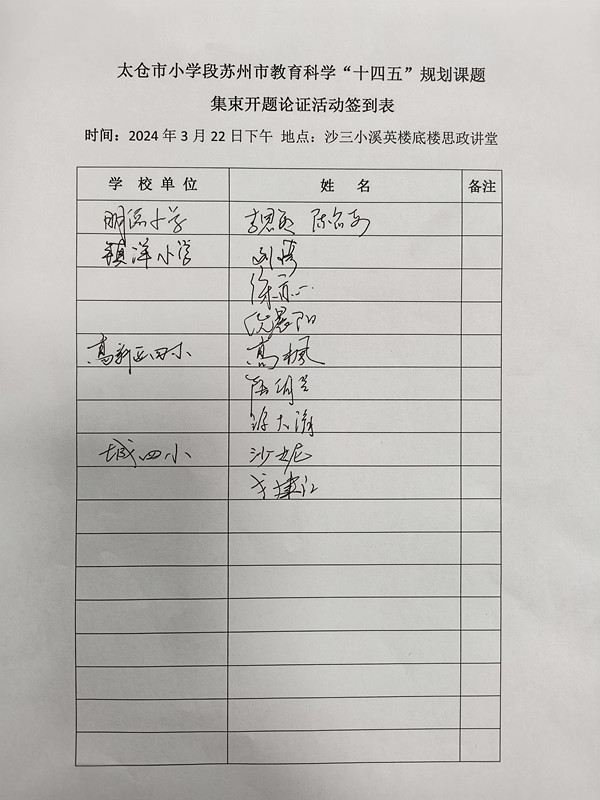 太仓市小学段苏州市教育科学“十四五”规划课题
集束开题论证活动签到表
时间：2024 年 3 月 22 日下午 地点：沙三小溪英楼底楼思政讲堂
学 校 单 位 姓 名 备注
明德小学
镇洋小学 刘倩
徐亦一
倪晨阳
高新区四小 高枫
城四小